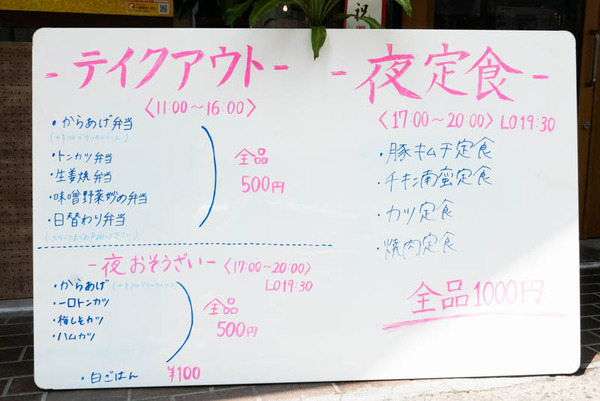 祝
-テイクアウト-
〈11:00～16:00〉
・からあげ弁当
・トンカツ弁当
・生姜焼弁当
・味噌野菜炒め弁当
・日替わり弁当
全品
500円
-夜おそうざい-〈17:00～20:00〉
LO19:30
・からあげ
・一口トンカツ
・梅しそカツ
・ハムカツ
全品
500円
・白ごはん ¥100
-夜定食-
〈17:00～20:00〉LO19:30
・豚キムチ定食
・チキン南蛮定食
・カツ定食
・焼肉定食
全品1000円